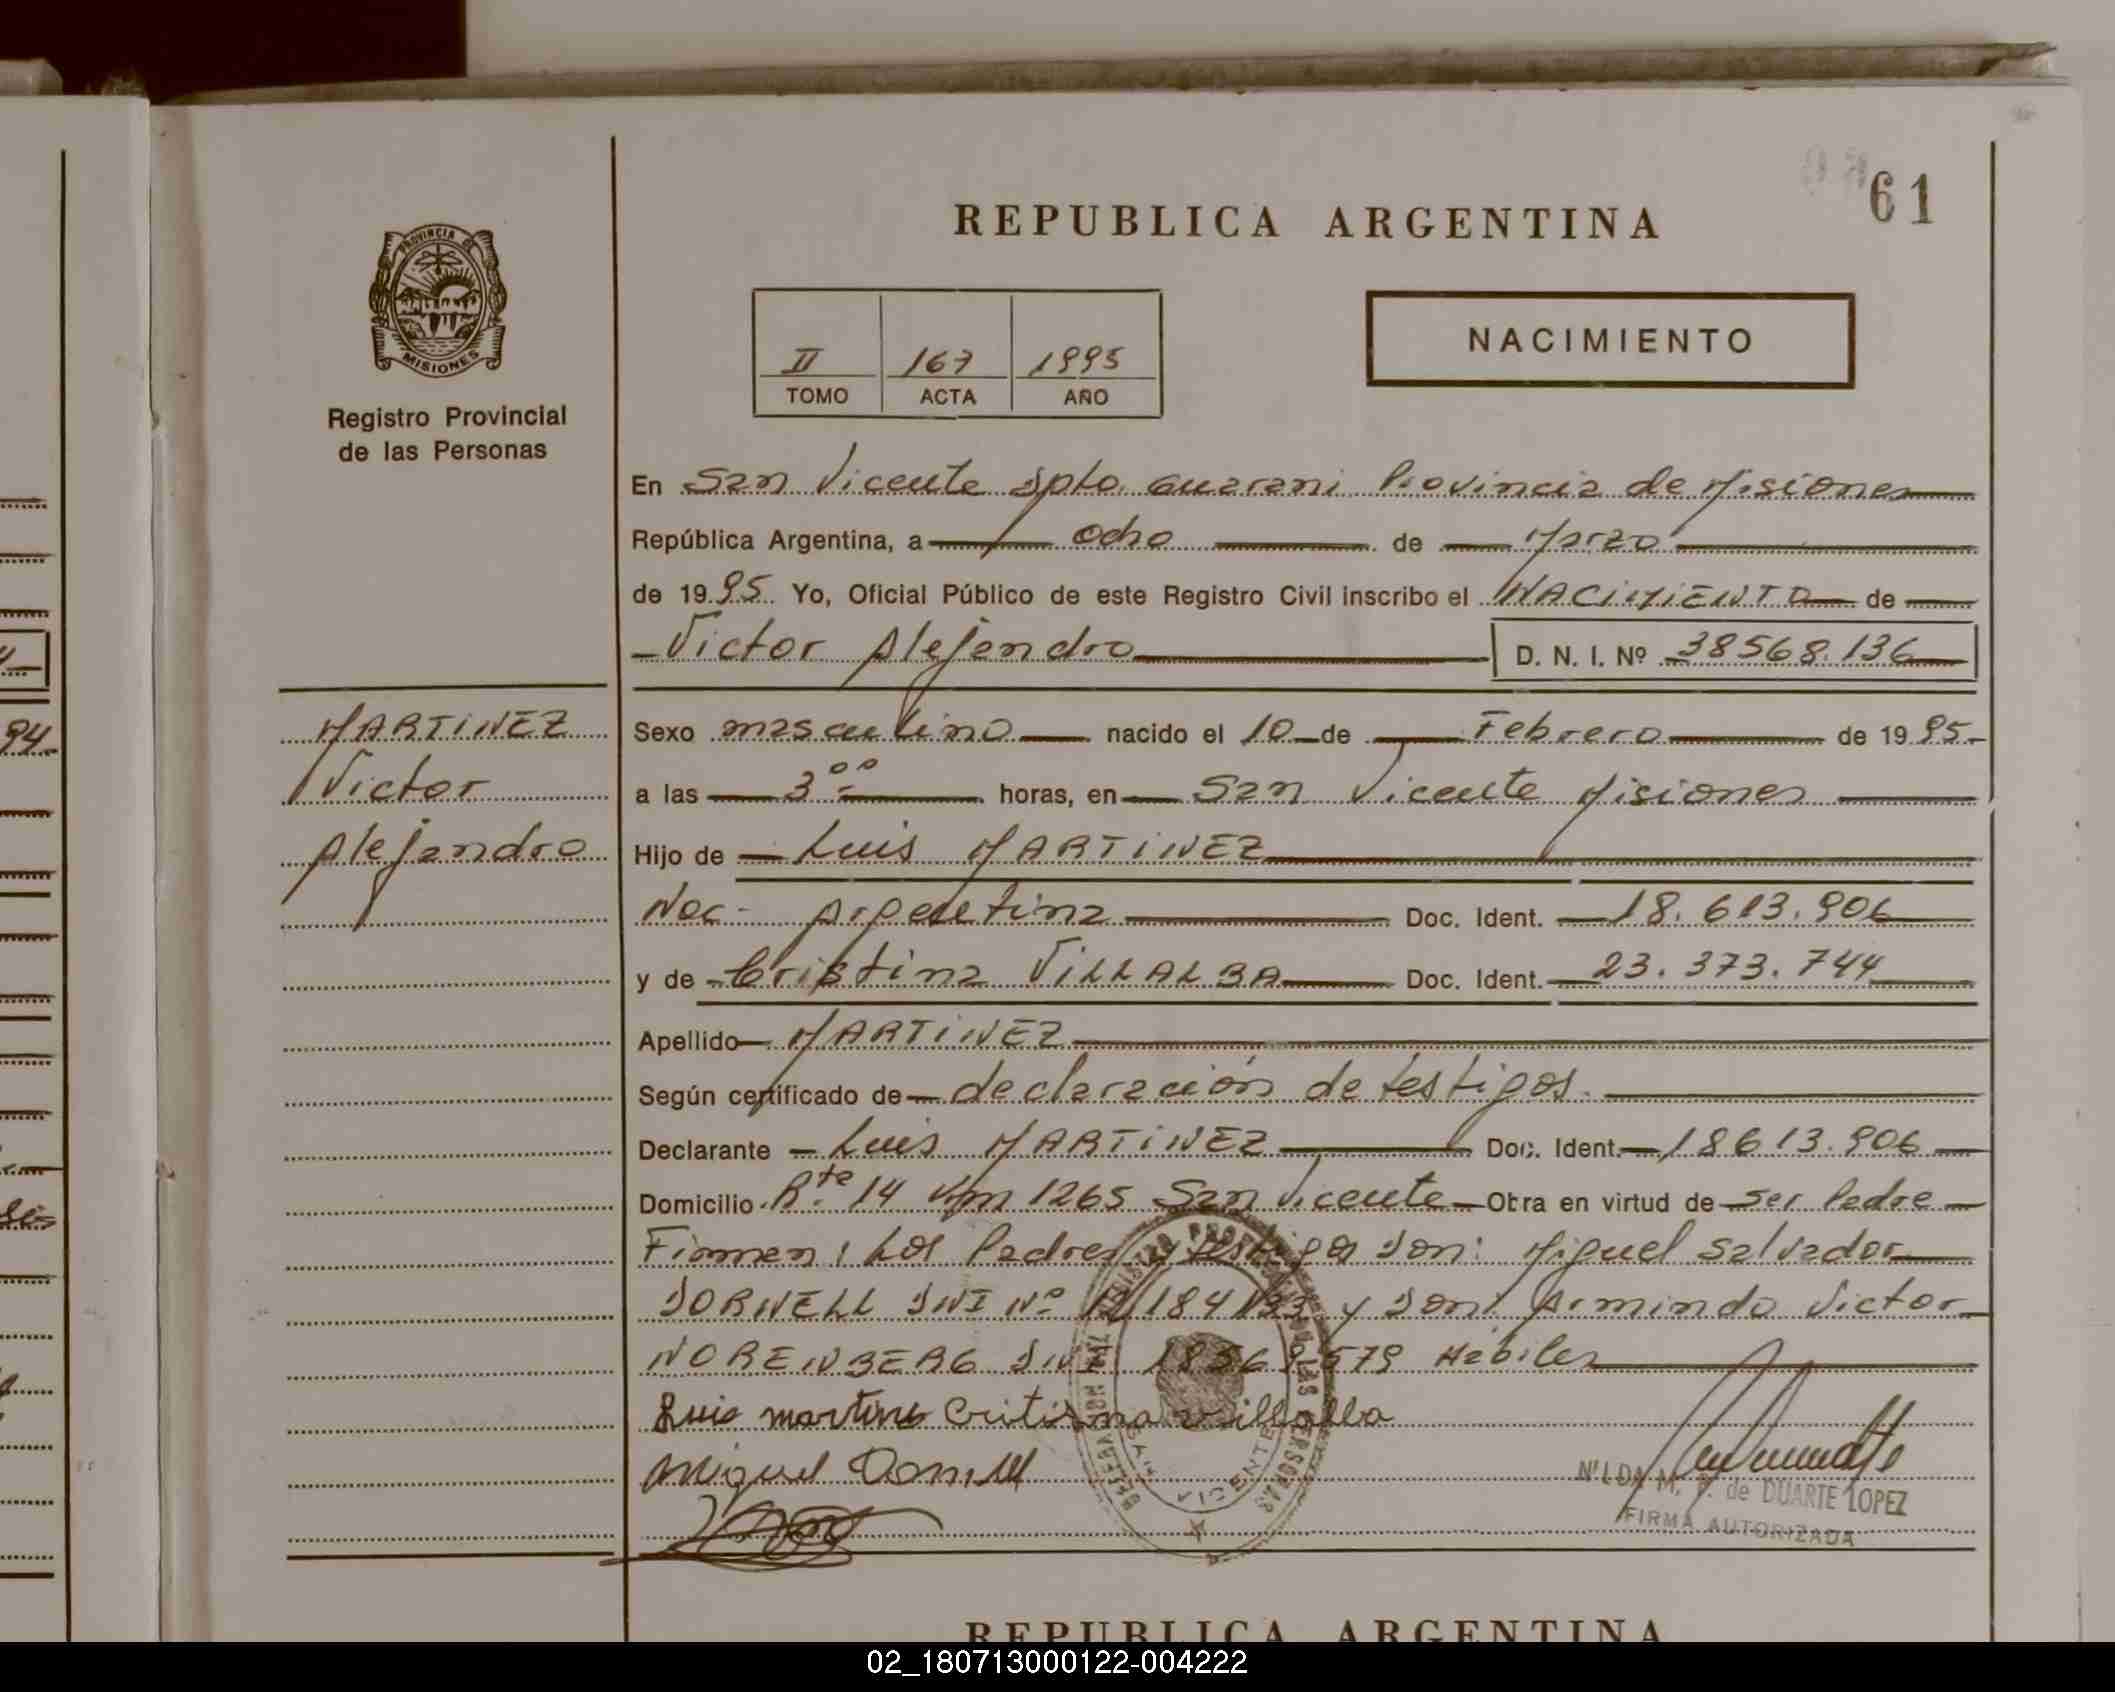 61
REPUBLICA ARGENTINA
PROVINCIA DE
MISIONES
Registro Provincial
de las Personas
II 167 1995
TOMO ACTA AÑO
NACIMIENTO
En San Vicente Dpto. Guarani Provincia de Misiones
República Argentina, a ocho de Marzo
de 1995 Yo, Oficial Público de este Registro Civil inscribo el NACIMIENTO de
Victor Alejandro D. N. I. Nº 38568.136
MARTINEZ
Victor
Alejandro
Sexo masculino nacido el 10 de Febrero de 1995
a las 3 oo horas, en San Vicente Misiones
Hijo de Luis MARTINEZ
Nac- Argentina Doc. Ident. 18.613.906
y de Cristina VILLALBA Doc. Ident. 23.373.744
Apellido MARTINEZ
Según certificado de declaración de testigos.
Declarante Luis MARTINEZ Doc. Ident. 18613.906
Domicilio Rta 14 Km 1265 San Vicente Obra en virtud de ser Padre
Firman: Los Padres y testigos Don: Miguel Salvador
DORNELL DNI Nº y Don: Armindo Victor
NORENBERG DNI Hábiles
Luis martines Critisma villalba
Miguel Dornell
SAN VICENTE
NILDA M. de DUARTE LOPEZ
FIRMA AUTORIZADA
REPUBLICA ARGENTINA
02_180713000122-004222